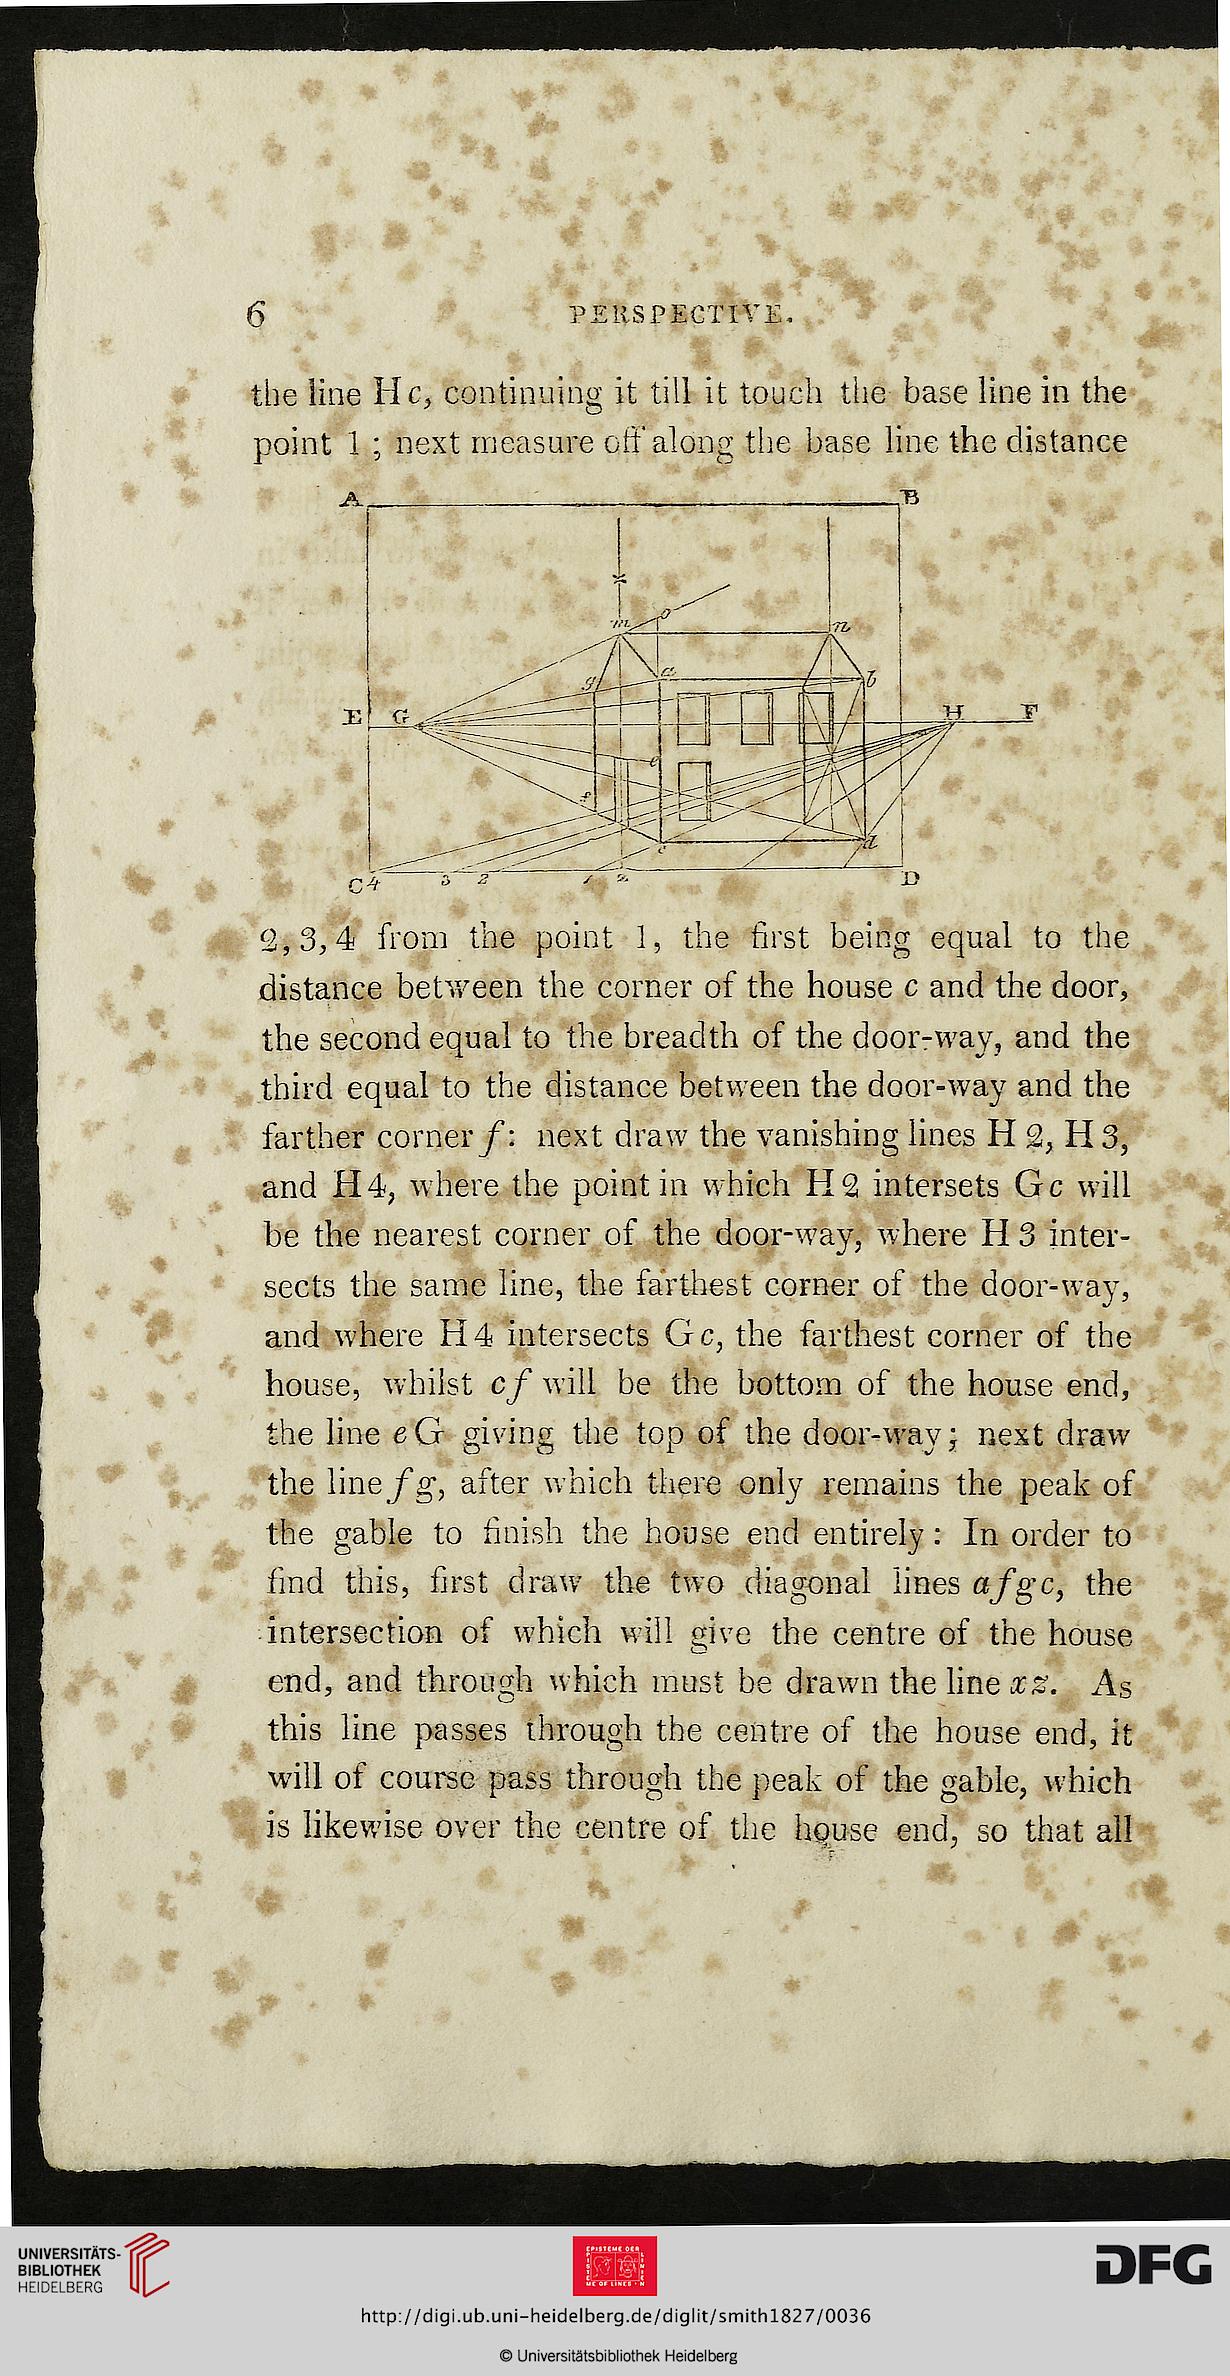 6
PERSPECTIVE.
the line Hc, continuing it till it touch the base line in the
point 1 ; next measure off along the base line the distance
A B
x
o
m n
g a b
E G H F
e
f
c d
C 4 3 2 1 z D
2, 3, 4 from the point 1, the first being equal to the
distance between the corner of the house c and the door,
the second equal to the breadth of the door-way, and the
third equal to the distance between the door-way and the
farther corner f: next draw the vanishing lines H 2, H 3,
and H 4, where the point in which H 2 intersets Gc will
be the nearest corner of the door-way, where H 3 inter-
sects the same line, the farthest corner of the door-way,
and where H 4 intersects Gc, the farthest corner of the
house, whilst cf will be the bottom of the house end,
the line eG giving the top of the door-way; next draw
the line fg, after which there only remains the peak of
the gable to finish the house end entirely: In order to
find this, first draw the two diagonal lines afgc, the
intersection of which will give the centre of the house
end, and through which must be drawn the line xz. As
this line passes through the centre of the house end, it
will of course pass through the peak of the gable, which
is likewise over the centre of the house end, so that all
UNIVERSITÄTS-
BIBLIOTHEK
HEIDELBERG
EPISTEME DER
LINIEN
EPISTE
ME OF LINES
DFG
http://digi.ub.uni-heidelberg.de/diglit/smith1827/0036
© Universitätsbibliothek Heidelberg